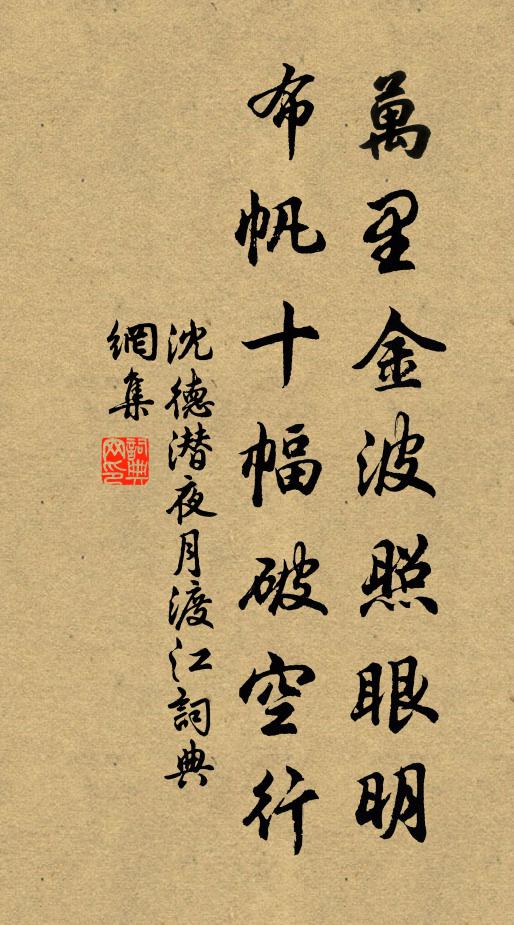 萬里金波照眼明
布帆十幅破空行
沈德潜夜月渡江詞典
網集
詞典網印